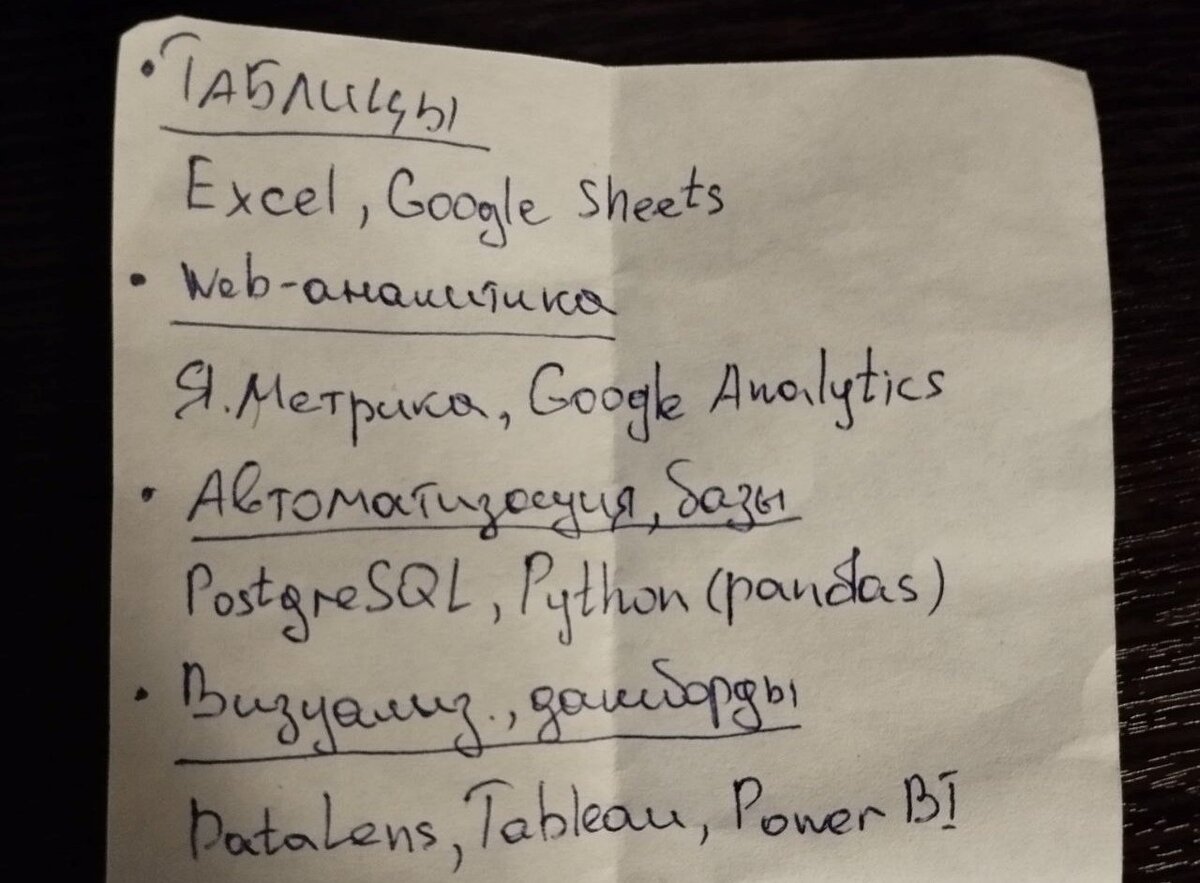 • Таблицы
Excel, Google Sheets
• Web-аналитика
Я.Метрика, Google Analytics
• Автоматизация, базы
PostgreSQL, Python (pandas)
• Визуализ., дашборды
DataLens, Tableau, Power BI